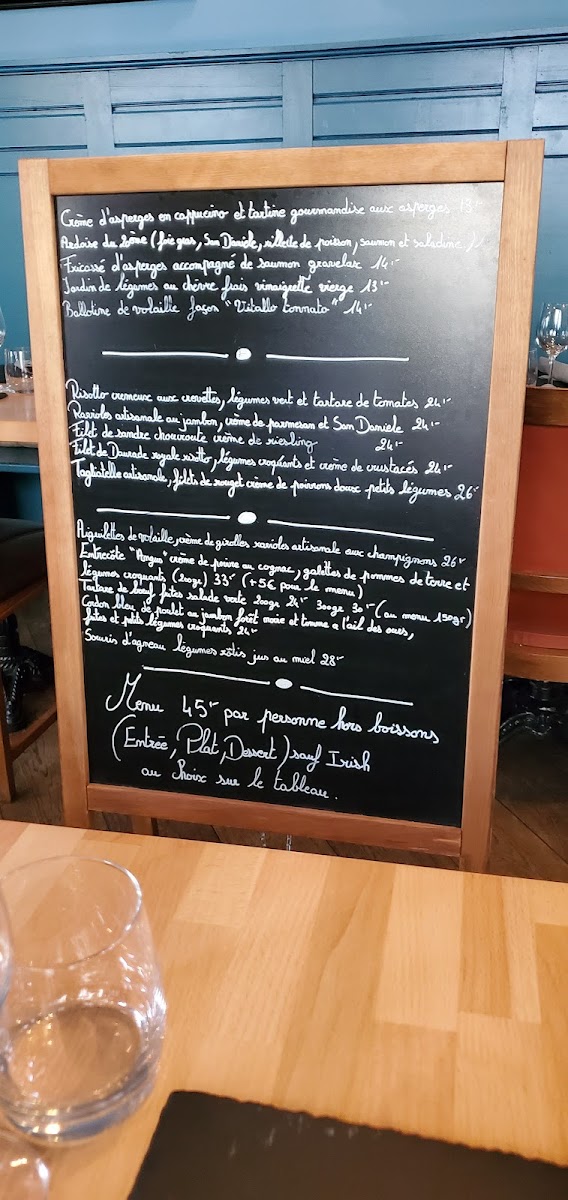 Crème d'asperges en cappucino et tartine gourmandise aux asperges 13
Ardoise du 20ème (foie gras, San Daniele, rillette de poisson, saumon et saladine)
Fricassé d'asperges accompagné de saumon gravelax 14.-
Jardin de légumes au chèvre frais vinaigrette vierge 13.-
Ballotine de volaille façon "Vitallo tonnato" 14.-
Risotto cremeux aux crevettes, légumes vert et tartare de tomates 24.-
Ravioles artisanale au jambon, crème de parmesan et San Daniele 24.-
Filet de sandre chouroute crème de riesling 24.-
Filet de Daurade royale risotto, légumes croquants et crème de crustacés 24.-
Tagliatelle artisanale, filets de rouget crème de poivrons doux petits légumes 26.-
Aiguilettes de volaille, crème de girolles ravioles artisanale aux champignons 26.-
Entrecôte "Angus" crème de poivre au cognac, galettes de pommes de terre et
légumes croquants (200gr) 33.- (+5€ pour le menu)
Tartare de bœuf frites salade verte 200gr 24.- 300gr 30.- (au menu 150gr)
Cordon bleu de poulet au jambon forêt noire et tomme a l'ail des ours,
frites et petits légumes croquants 24.-
Souris d'agneau légumes rôtis jus au miel 28.-
Menu 45.- par personne hors boissons
(Entrée, Plat, Dessert) sauf Irish
au Choix sur le tableau.